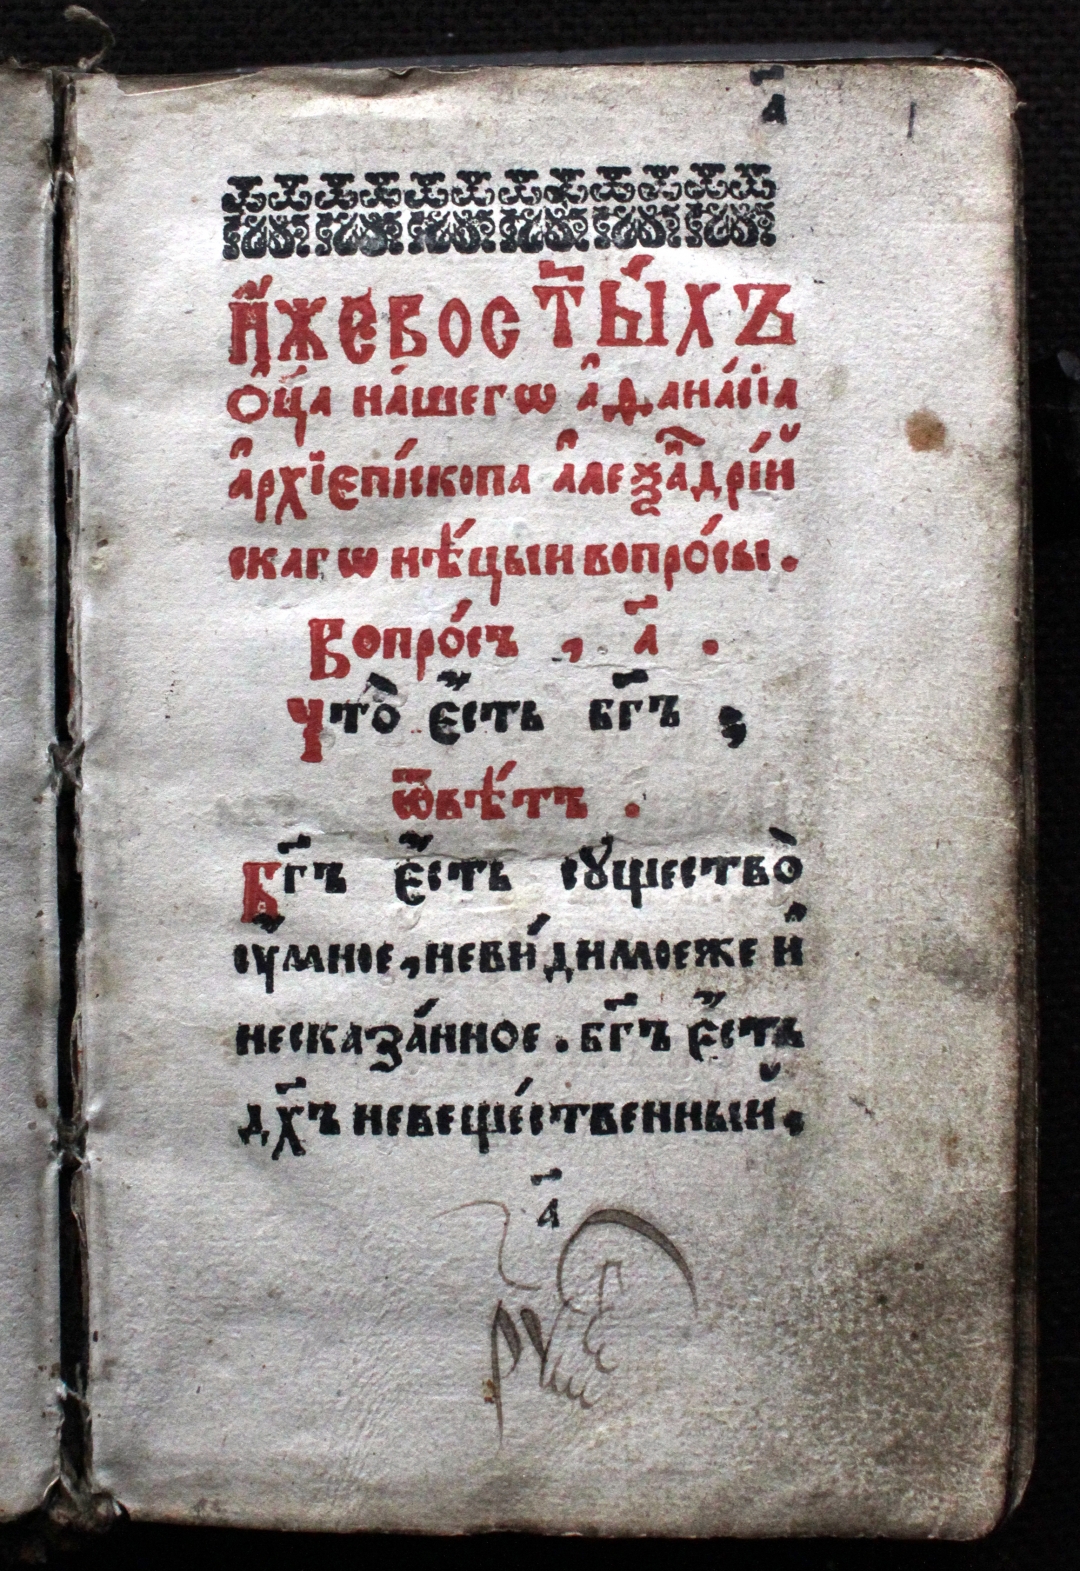 а҃ 1
И҆́же во с҃ты́хъ
ѻ҆ц҃а на́шегѡ а҆ѳана́сїа
а҆рхїєпі́скопа а҆леѯа́ⷩдрі́й
скагѡ нѣ́цыи вопро́сы.
Вопро́съ , а҃ .
Что̀ є҆́сть бг҃ъ ,
ѿвѣ́тъ .
Бг҃ъ є҆́сть сꙋщество̀
ᲂу҆́мное, неви́димоеже и҆
несказа́нное . бг҃ъ є҆́сть
дх҃ъ невеще́ственный,
а҃